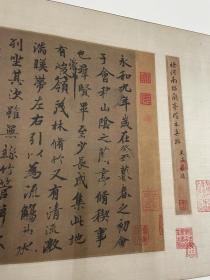 褚河南臨蘭亭絹本真跡
永和九年歲在癸丑暮春之初會
于會稽山陰之蘭亭脩稧事
也群賢畢至少長咸集此地
有崇山峻領茂林脩竹又有清流激
湍暎帶左右引以為流觴曲水
列坐其次雖無絲竹管